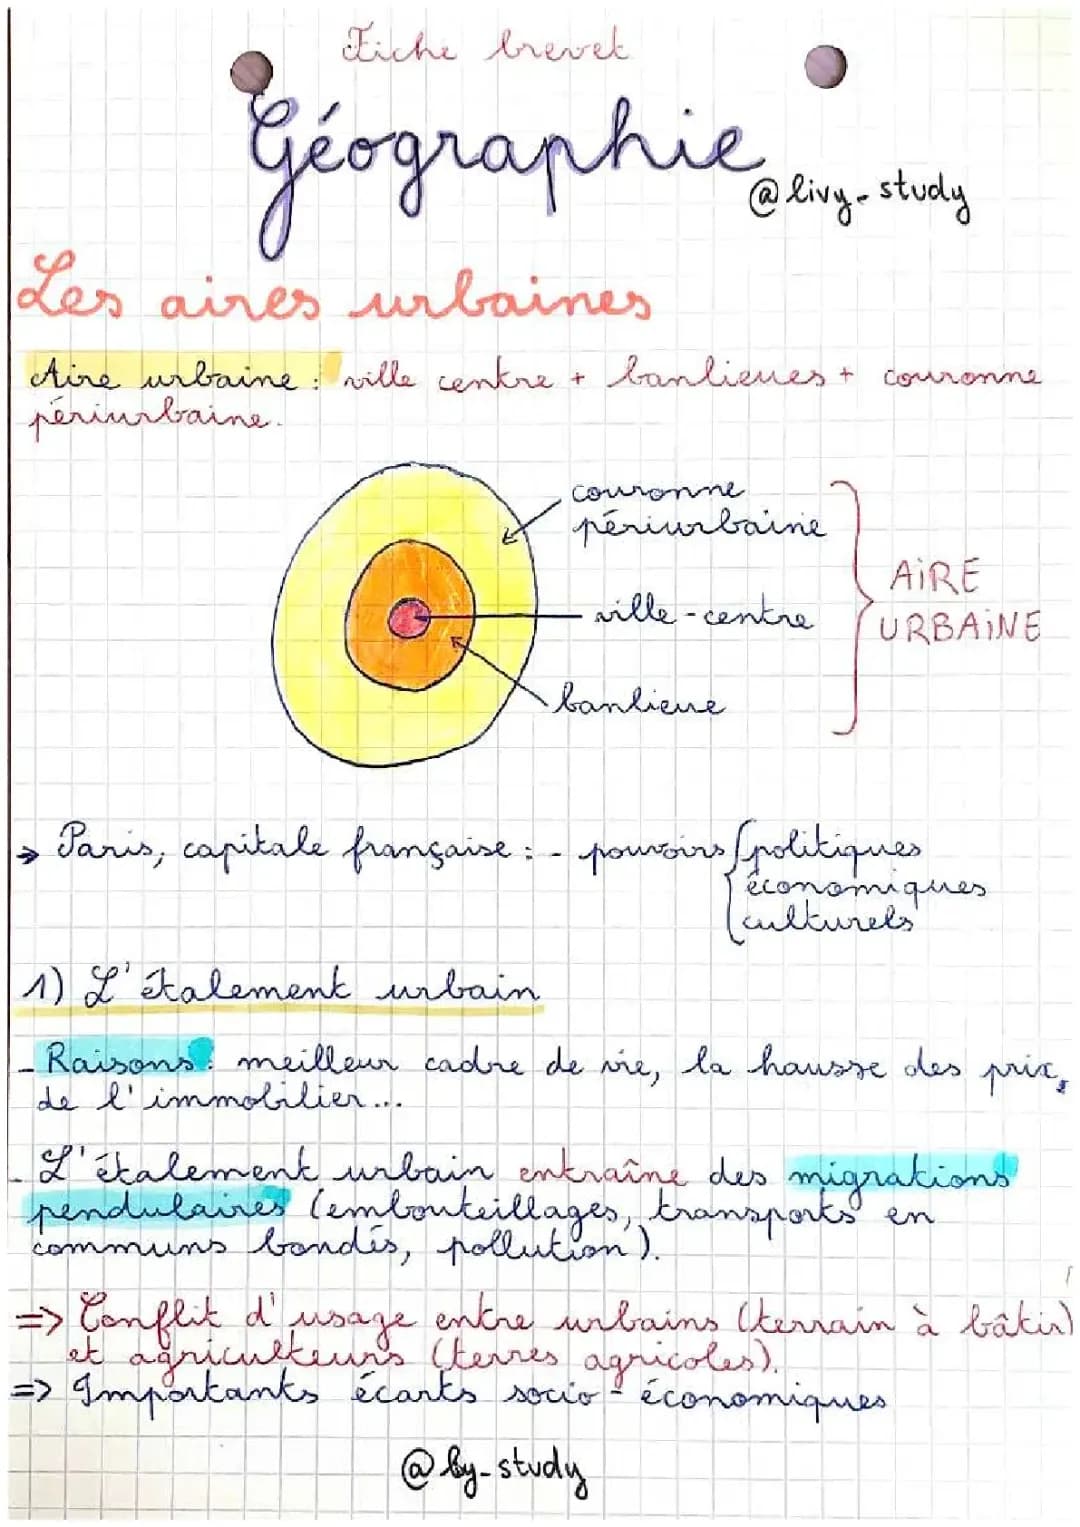 Fiche brevet
Géographie
@livy-study
Les aires urbaines
Aire urbaine : ville centre + banlieues + couronne
périurbaine.
couronne
périurbaine
ville-centre
banlieue
AIRE
URBAINE
→ Paris, capitale française : - pouvoirs { politiques
économiques
culturels
1) L'étalement urbain
- Raisons : meilleur cadre de vie, la hausse des prix,
de l'immobilier...
- L'étalement urbain entraîne des migrations
pendulaires (embouteillages, transports en
communs bondés, pollution).
=> Conflit d'usage entre urbains (terrain à bâtir)
et agriculteurs (terres agricoles).
=> Importants écarts socio-économiques
@by-study